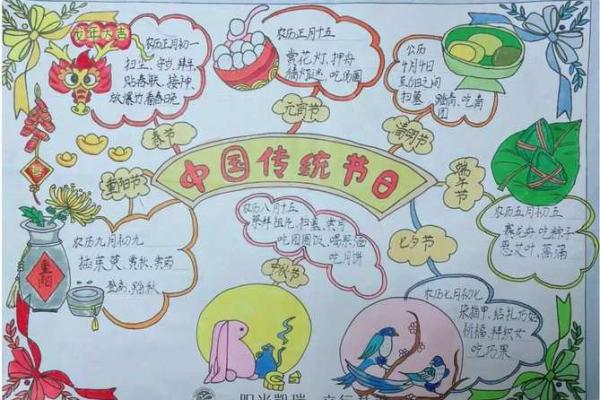 龙年大吉
农历正月初一
扫尘、守岁、拜年
贴春联、接神、
放爆竹看春晚
春节
农历正月十五
赏花灯、押舟
猜灯谜、吃汤圆
元宵节
公历
4月4日
至6日之间
扫墓、踏青、吃青
团
清明节
中国传统节日
端午节
农历五月初五
赛龙舟 吃粽子
悬艾叶、菖蒲
重阳节
农历九月初九
插茱萸、赏秋、赏菊
登高、踏秋
重阳
农历八月十五
祭拜祖先、扫墓、赏月
吃团圆饭、喝桂花酒
吃月饼
中秋节
七夕节
农历七月初七
染指甲、结扎巧姑
祈福、拜织女
吃巧果
阳光凯瑞